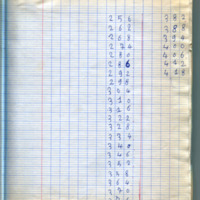 2 5 6
2 6 2
2 6 8
2 7 4
2 8 0
2 8 6
2 9 2
2 9 8
3 0 4
3 1 0
3 1 6
3 2 2
3 2 8
3 3 4
3 4 0
3 4 6
3 5 2
3 5 8
3 6 4
3 7 0
3 8 2
3 8 8
3 9 4
4 0 0
4 0 6
4 1 2
4 1 8